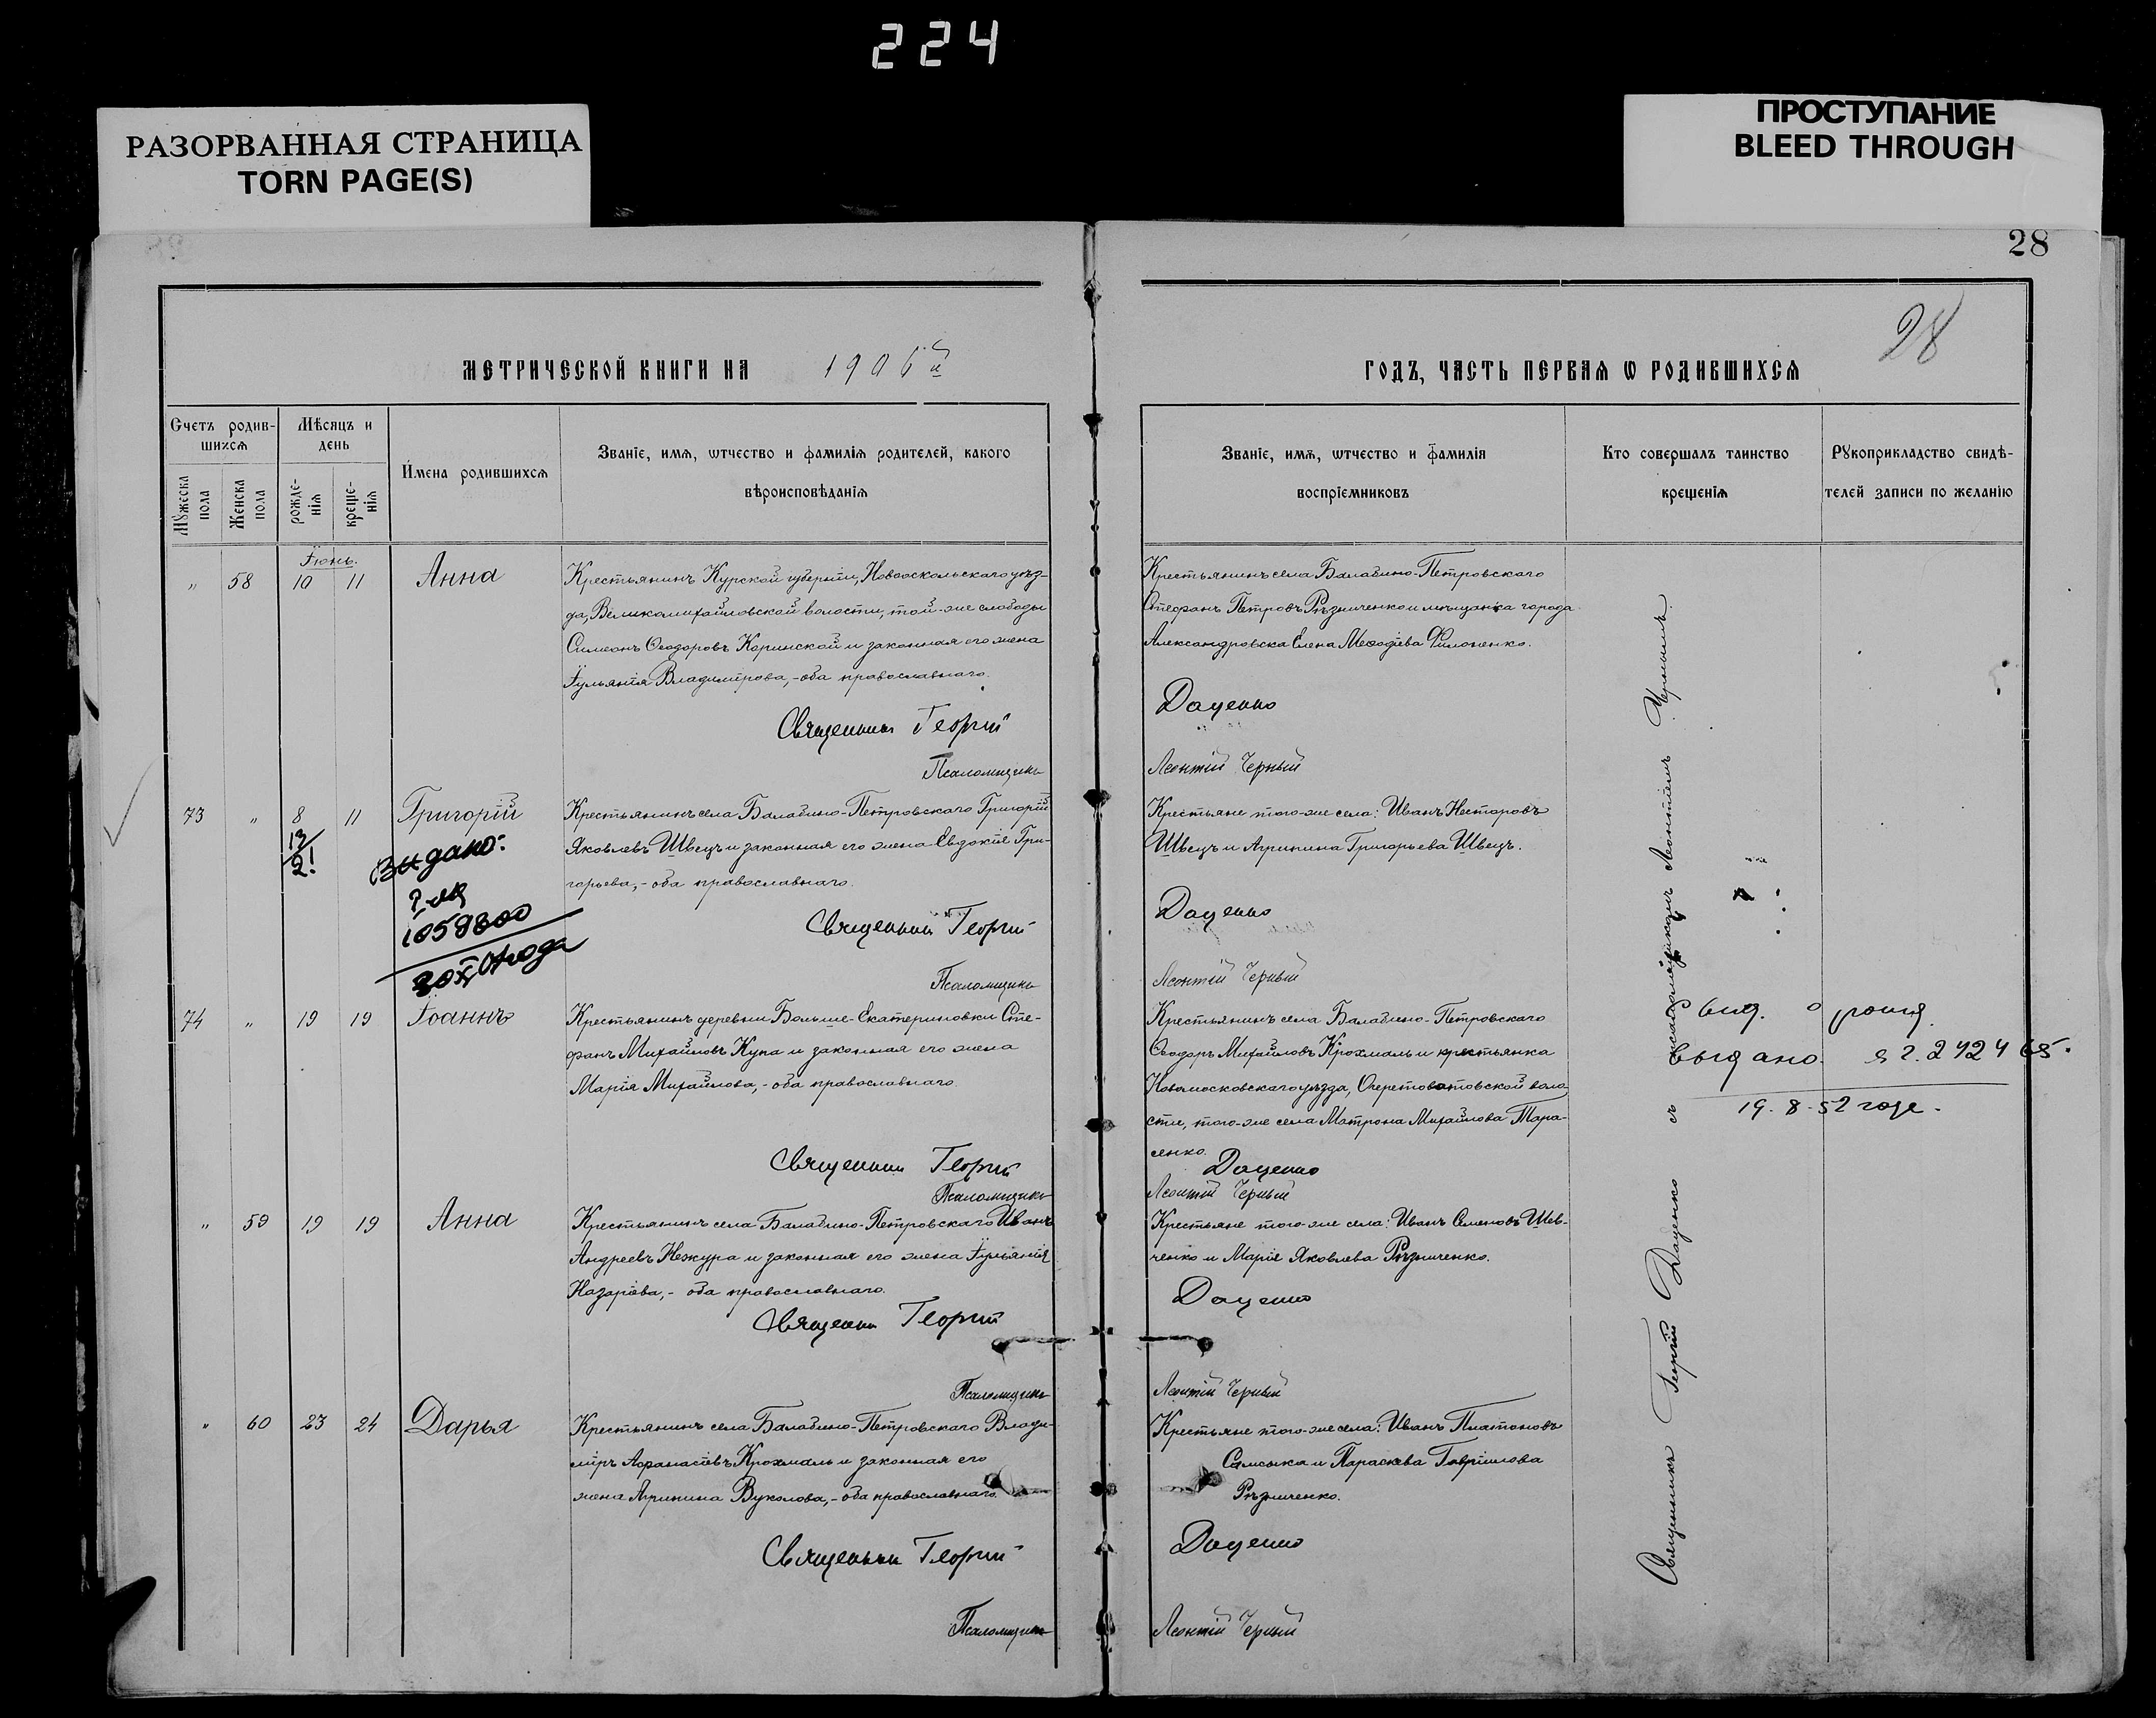 224
РАЗОРВАННАЯ СТРАНИЦА
TORN PAGE(S)
ПРОСТУПАНИЕ
BLEED THROUGH
28
28
МЕТРИЧЕСКОЙ КНИГИ НА 1906й
ГОДЪ, ЧАСТЬ ПЕРВАЯ Ѡ РОДИВШИХСЯ
Счетъ родив-
шихся
Мѣсяцъ и
день
Мужеска
пола
Женска
пола
рожде-
нія
креще-
нія
Имена родившихся
Званіе, имя, ѡтчество и фамилія родителей, какого
вѣроисповѣданія
Званіе, имя, ѡтчество и фамилія
воспріемниковъ
Кто совершалъ таинство
крещенія
Рукоприкладство свидѣ-
телей записи по желанію
Іюнь.
„ 58 10 11 Анна
Крестьянинъ Курской губерніи, Новооскольскаго уѣз-
да, Великомихайловской волости, той-же слободы
Симеонъ Ѳеодоровъ Коринской и законная его жена
Іульянія Владимірова, - оба православнаго.
Священникъ Георгій
Псаломщикъ
Крестьянинъ села Балабино-Петровскаго
Стефанъ Петровъ Рѣзниченко и мѣщанка города
Александровска Елена Меѳодіева Филоненко.
Даценко
Леонтій Черный
73 „ 8 11 Григорій
Крестьянинъ села Балабино-Петровскаго Григорій
Яковлевъ Швецъ и законная его жена Евдокія Гри-
горьева, - оба православнаго.
Священникъ Георгій
Псаломщикъ
Видано:
1059800
Крестьяне того-же села: Иванъ Несторовъ
Швецъ и Агрипина Григорьева Швецъ.
Даценко
Леонтій Черный
74 „ 19 19 Іоаннъ
Крестьянинъ деревни Больше-Екатериновки Сте-
фанъ Михайловъ Купа и законная его жена
Марія Михайлова, - оба православнаго.
Священникъ Георгій
Псаломщикъ
Крестьянинъ села Балабино-Петровскаго
Ѳеодоръ Михайловъ Крохмаль и крестьянка
Новомосковскаго уѣзда, Очеретоватовской воло-
сти, того-же села Матрона Михайлова Тара-
сенко.
Даценко
Леонтій Черный
выдано
19.8.52 года.
„ 59 19 19 Анна
Крестьянинъ села Балабино-Петровскаго Иванъ
Андреевъ Нежура и законная его жена Іульянія
Назаріева, - оба православнаго.
Священникъ Георгій
Псаломщикъ
Крестьяне того-же села: Иванъ Семеновъ Шев-
ченко и Марія Яковлева Рѣзниченко.
Даценко
Леонтій Черный
„ 60 23 24 Дарья
Крестьянинъ села Балабино-Петровскаго Влади-
міръ Аѳанасіевъ Крохмаль и законная его
жена Агрипина Вуколова, - оба православнаго.
Священникъ Георгій
Псаломщикъ
Крестьяне того-же села: Иванъ Платоновъ
Самсыка и Параскева Гавріилова
Рѣзниченко.
Даценко
Леонтій Черный
Священникъ Георгій Даценко съ псаломщикомъ Леонтіемъ Чернымъ